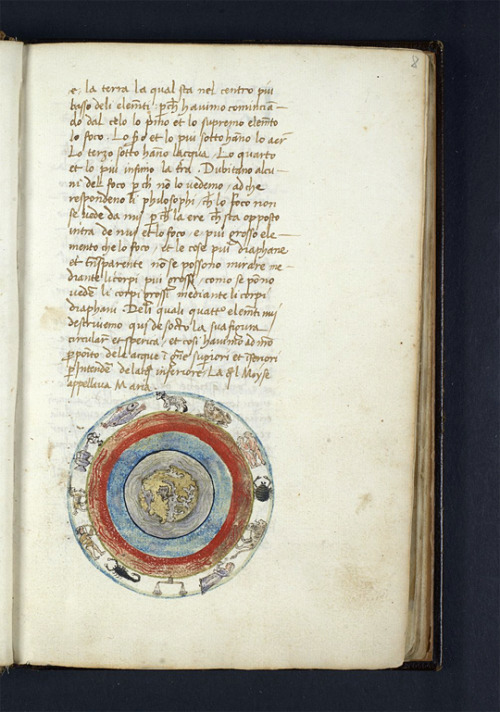 8
e, la terra la qual sta nel centro più
basso deli elemẽti. pch̃ havimo comincia–
do dal celo lo pño et lo supremo elemẽto
lo foco. Lo 2d et lo più sotto hãno lo aer
Lo terzo sotto hãno lacqua, Lo quarto
et lo più infimo la tr̃a. Dubitano alcu–
ni del foco pch nõ lo vedemo, ad che
respondeno li philosophi, ch̃ lo foco non
se vede da nui pch̃ la ere ch̃ sta opposto
intra de nui et lo foco, e più grosso ele–
mento che lo foco, et le cose più diaphane
et trãsparente nõ se possono mirare me–
diante li corpi più grossi, como se põno
vedere li corpi grossi mediante li corpi
diaphani. Deli quali quattro elemẽti nui
destrivemo qui de sotto la sua figura
circular et sperica, et cosi havimo ad mõ
pposito dele acque superiori et inferiori
p intendere inferiore. La q̃l Moyse
appellava Maria.